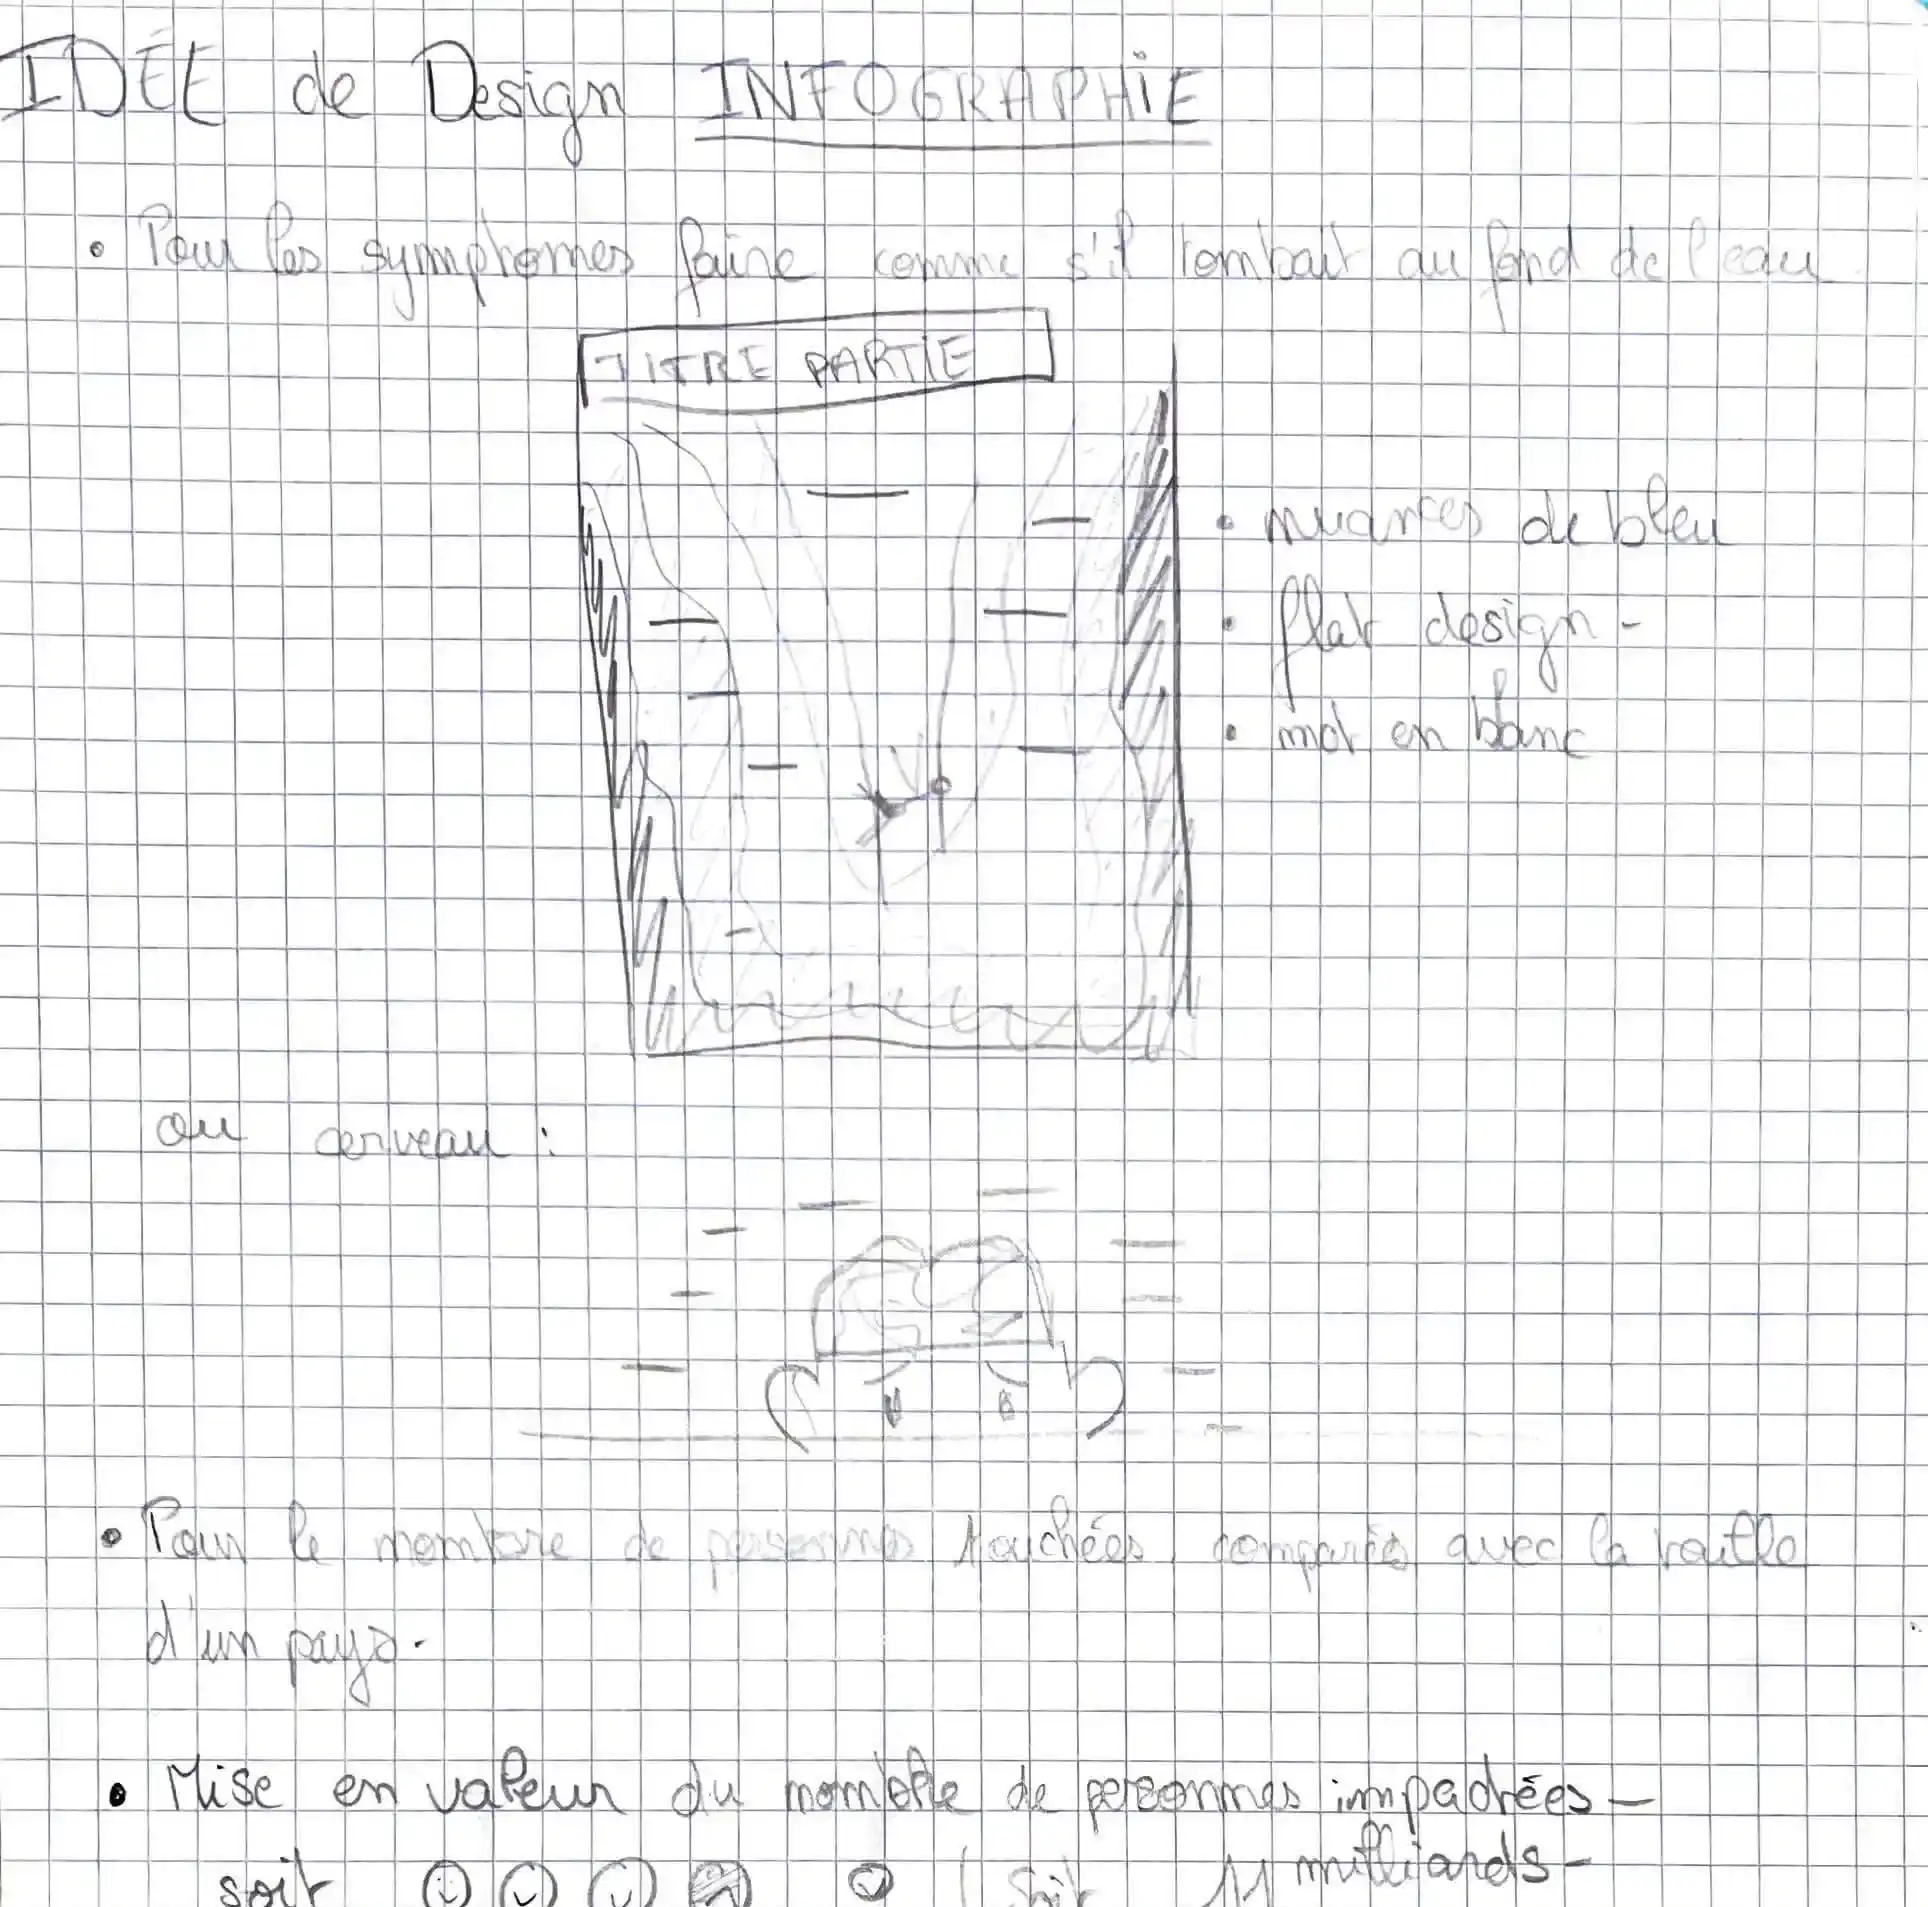 IDÉE de Design INFOGRAPHIE
• Pour les symptomes faire comme s'il tombait au fond de l'eau
TITRE PARTIE
• nuances de bleu
• flat design -
• mot en blanc
ou cerveau :
• Pour le nombre de personnes touchées comparés avec la taille
d'un pays.
• Mise en valeur du nombre de personnes impactées -
soit / soit 11 milliards -